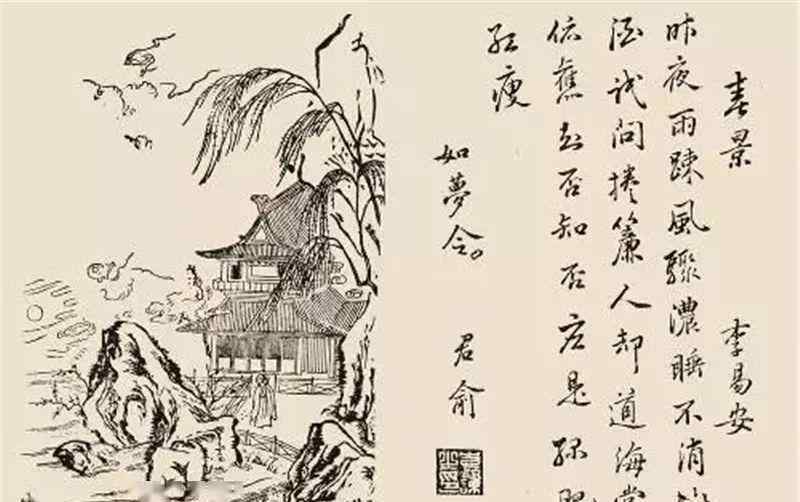 春景 李易安
昨夜雨踈風驟濃睡不消
酒試問捲簾人却道海棠
依舊知否知否应是綠肥
紅瘦
如夢令。
君俞